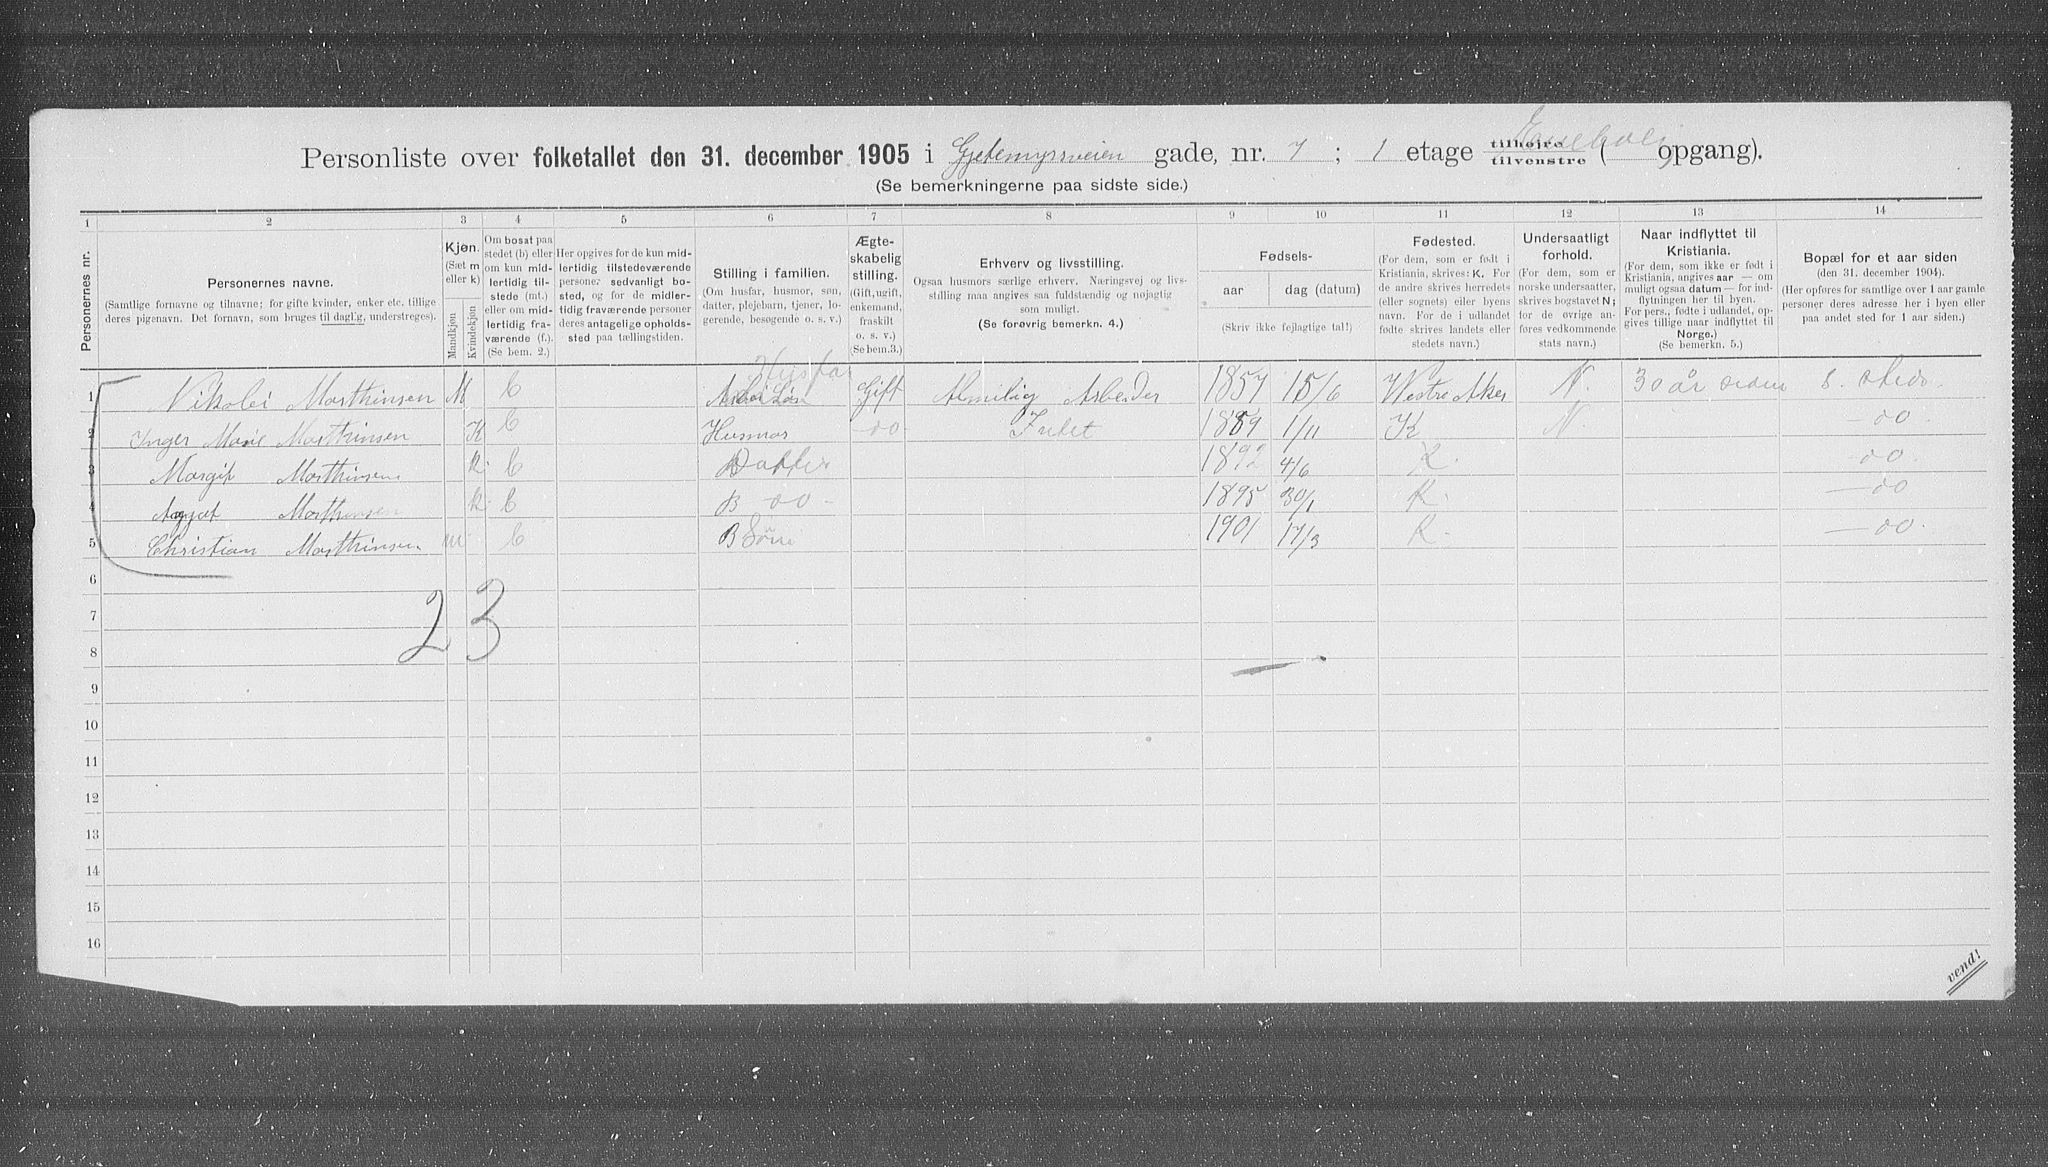 Personliste over folketallet den 31. december 1905 i Gjetemyrsveien gade, nr. 7 ; 1 etage tilhøjre tilvenstre ( opgang).
(Se bemerkningerne paa sidste side.)
1 2 3 4 5 6 7 8 9 10 11 12 13 14
Personernes nr.
Personernes navne.
(Samtlige fornavne og tilnavne; for gifte kvinder, enker etc. tillige deres pigenavn. Det fornavn, som bruges til daglig, understreges).
Kjøn.
(Sæt m eller k)
Mandkjøn
Kvindekjøn
Om bosat paa stedet (b) eller om kun midlertidig tilstede (mt.) eller om midlertidig fraværende (f.). (Se bem. 2.)
Her opgives for de kun midlertidig tilstedeværende personer sedvanligt bosted, og for de midlertidig fraværende personer deres antagelige opholdssted paa tællingstiden.
Stilling i familien.
(Om husfar, husmor, søn, datter, plejebarn, tjener, logerende, besøgende o. s. v.)
Ægteskabelig stilling.
(Gift, ugift, enkemand, fraskilt o. s. v.)
(Se bem. 3.)
Erhverv og livsstilling.
Ogsaa husmors særlige erhverv. Næringsvej og livsstilling maa angives saa fuldstændig og nøjagtig som muligt.
(Se forøvrig bemerkn. 4.)
Fødsels-
aar
dag (datum)
(Skriv ikke fejlagtige tal!)
Fødested.
(For dem, som er født i Kristiania, skrives: K. For de andre skrives herredets (eller sognets) eller byens navn. For de i udlandet fødte skrives landets eller stedets navn.)
Undersaatligt forhold.
(For dem, som er norske undersaatter, skrives bogstavet N; for de øvrige anføres vedkommende stats navn.)
Naar indflyttet til Kristiania.
(For dem, som ikke er født i Kristiania, angives aar — om muligt ogsaa datum — for indflytningen her til byen. For pers., fødte i udlandet, opgives tillige naar indflyttet til Norge.)
(Se bemerkn. 5.)
Bopæl for et aar siden
(den 31. december 1904).
(Her opføres for samtlige over 1 aar gamle personer deres adresse her i byen eller paa andet sted for 1 aar siden.)
Husfar
1 Nikolai Marthinsen M b Gift Almilig Arbeider 1857 15/6 Westre Aker N. 30 år siden S. sted.
2 Inger Marie Marthinsen K b Husmor do 1859 1/11 K N. do
3 Margit Marthinsen k. b Datter 1892 4/6 K. do.
4 Marthinsen k. b B do 1895 30/1 K. do
5 Christian Marthinsen m b B Søn 1901 17/3 K. do.
6
2 3
7
8
9
10
11
12
13
14
15
16
vend!